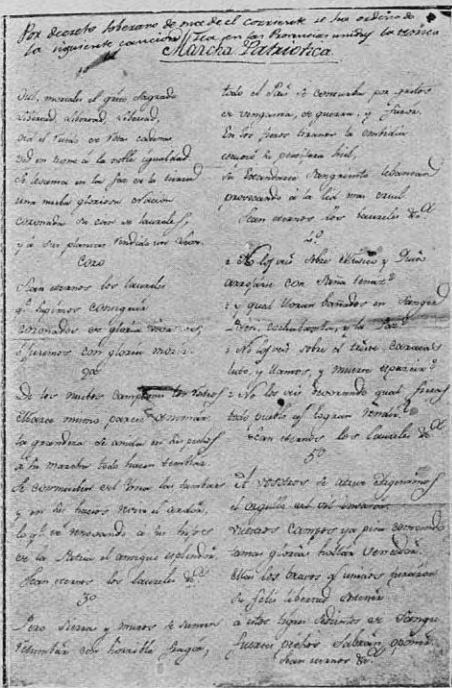 Por decreto soberano de once del corriente se ha ordenado
la siguiente cancion sea en las Provincias unidas la unica
Marcha Patriotica
1º
Oid, mortales el grito Sagrado
Libertad, Libertad, Libertad,
Oid el ruido de rotas cadenas
ved en trono a la noble igualdad.
Se levanta en la faz de la tierra
una nueva gloriosa Nacion
coronada su cien de laureles,
y a sus plantas rendido un Leon.
Coro
Sean eternos los laureles
q.e supimos conseguir
coronados de gloria vivamos,
ó juremos con gloria morir.
2º
De los nuevos campeones los rostros
Marte mismo parece animar
la grandeza se anida en sus pechos
a su marcha todo hacen temblar.
Se conmueven del Inca las tumbas
y en sus huesos revive el ardor,
lo q.e ve renovando a sus hijos
de la Patria el antiguo esplendor.
Sean eternos los laureles &.
3º
Pero sierras y muros se sienten
retumbar con horrible fragor,
todo el Pais se conturba por gritos
de venganza, de guerra, y furor.
En los fieros tiranos la embidia
escupió su pestifera hiel,
su estandarte sangriento levantan
provocando a la lid mas cruel.
Sean eternos los laureles &.
4º
¿No los veis sobre Mexico y Quito
arrojarse con Saña tenaz?
¿y qual lloran bañados en Sangre
Potosi, Cochabamba, y la Paz?
¿No los veis sobre el triste Caracas
luto, y llantos, y muerte esparcir?
¿No los veis devorando qual fieras
todo pueblo q.e logran rendir?
Sean eternos los laureles &.
5º
A vosotros se atreve Argentinos
el orgullo del vil invasor.
vuestros campos ya pisa contando
tantas glorias hollar vencedor.
Mas los bravos q.e unidos juraron
su feliz libertad sostener
a estos tigres sedientos de Sangre
fuertes pechos sabran oponer.
Sean eternos &.